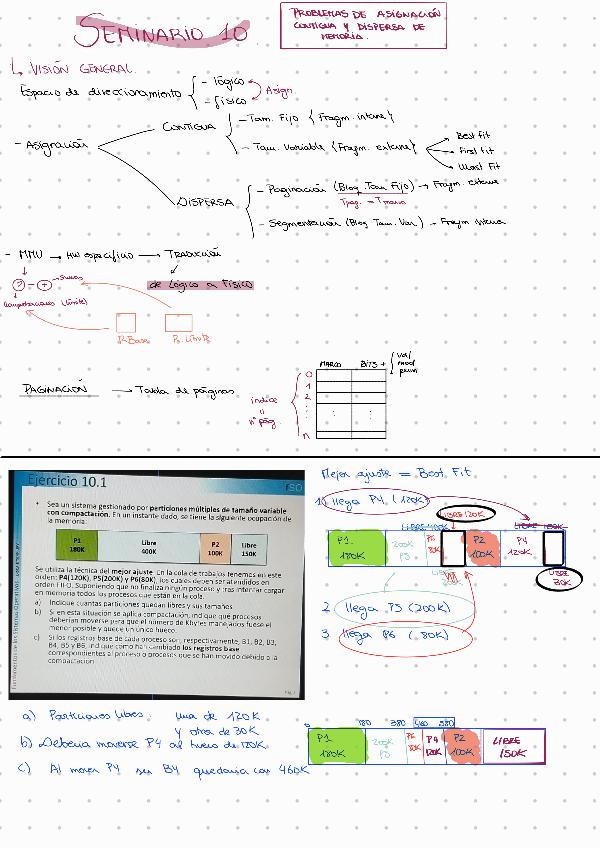 SEMINARIO 10
PROBLEMAS DE ASIGNACIÓN
CONTIGUA Y DISPERSA DE
MEMORIA.
VISIÓN GENERAL.
Espacio de direccionamiento
- lógico
- físico
Asign.
- Asignación
CONTIGUA
- Tam. Fijo {Fragm. interna}
- Tam. Variable {Fragm. externa}
Best fit
First fit
Worst Fit
DISPERSA
- Paginación (Bloq. Tam Fijo) → Fragm. externa
Tpag. = Tmarco
- Segmentación (Bloq Tam. Var) → Fragm interna
- MMU → HW específico → TRADUCCIÓN
de lógico a físico
? - +
Sumas
Comparaciones (límite)
R.Base
R. Límite
PAGINACIÓN → Tabla de páginas
índice
"
nº pág.
MARCO BITS +
0
1
2
n
Ejercicio 10.1
FSO
• Sea un sistema gestionado por particiones múltiples de tamaño variable
con compactación. En un instante dado, se tiene la siguiente ocupación de
la memoria:
P1
180K
Libre
400K
P2
100K
Libre
150K
Se utiliza la técnica del mejor ajuste. En la cola de trabajos tenemos en este
orden: P4(120K), P5(200K) y P6(80K), los cuales deben ser atendidos en
orden FIFO. Suponiendo que no finaliza ningún proceso y tras intentar cargar
en memoria todos los procesos que están en la cola.
a) Indique cuantas particiones quedan libres y sus tamaños
b) Si en esta situación se aplica compactación, indique que procesos
deberían moverse para que el número de Kbytes manejados fuese el
menor posible y quede un único hueco.
c) Si los registros base de cada proceso son, respectivamente, B1, B2, B3,
B4, B5 y B6, indique como han cambiado los registros base
correspondientes al proceso o procesos que se han movido debido a la
compactación
Mejor ajuste = Best Fit
1. llega P4 (120K)
LIBRE 120K
LIBRE 400K
LIBRE 150K
P1
180K
200K
P5
P6
80K
P2
100K
P4
120K
LIBRE
30K
2. llega P5 (200K)
3. llega P6 (80K)
a) Particiones libres: una de 120K
y otra de 30K
b) Debería moverse P4 al hueco de 120K.
c) Al mover P4 su B4 quedaría con 460K
0 180 380 460 580
P1
180K
200K
P5
P6
80K
P4
120K
P2
100K
LIBRE
150K